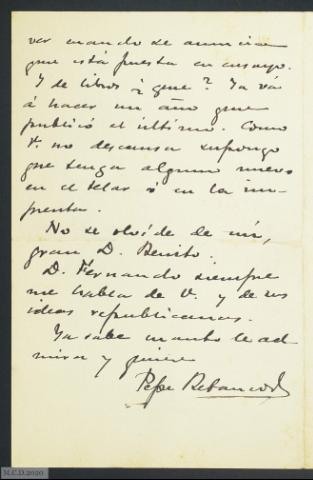 ver cuando se anuncia
que está puesta en ensayo.
Y de libros ¿ que? Ya vá
á hacer un año que
publicó el último. Como
V. no descansa supongo
que tenga alguno nuevo
en el telar ó en la im-
prenta.
No se olvide de mí,
gran D. Benito.
D. Fernando siempre
me habla de V. y de sus
ideas republicanas.
Ya sabe cuanto le ad
mira y quiere
Pepe Betancort
M.C.D.2020